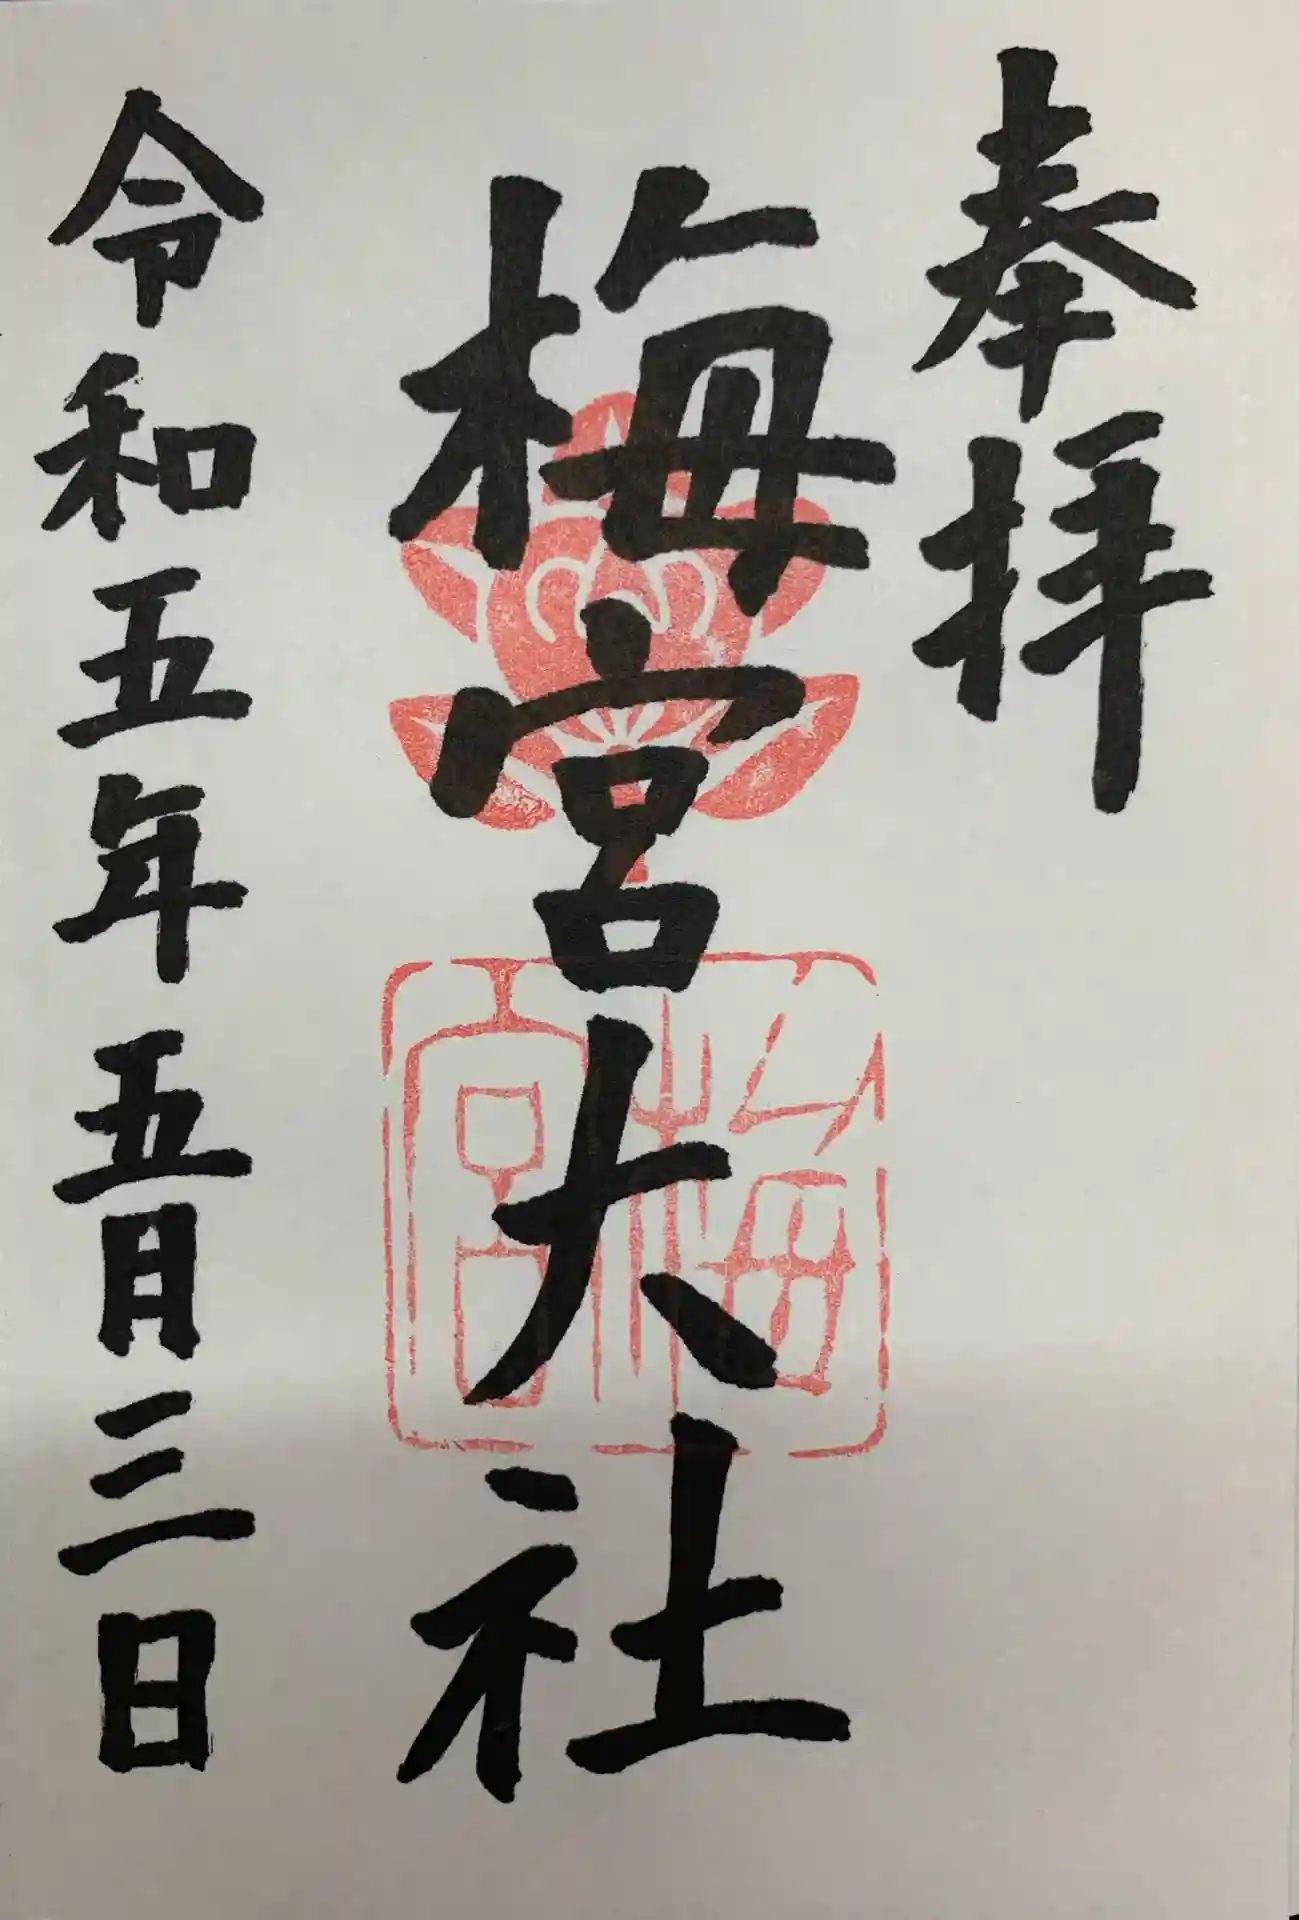 奉拝
梅宮大社
梅宮
令和五年五月三日